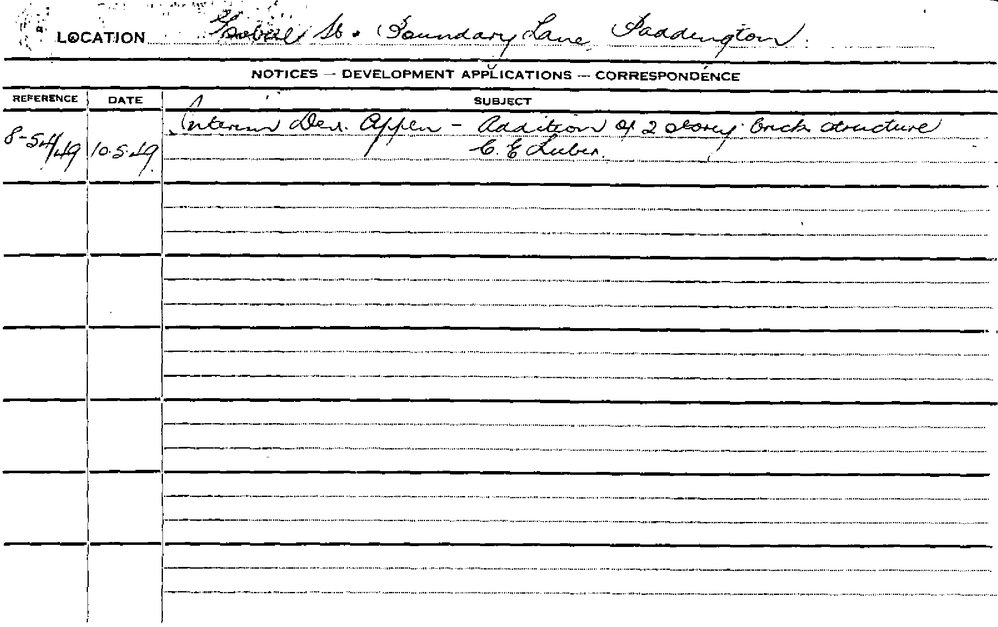 LOCATION St. Boundary Lane, Paddington.
NOTICES — DEVELOPMENT APPLICATIONS — CORRESPONDENCE
REFERENCE DATE SUBJECT
Interim Dev. Appln - Addition of 2 storey brick structure
8-54/49 10.5.49 C. E.